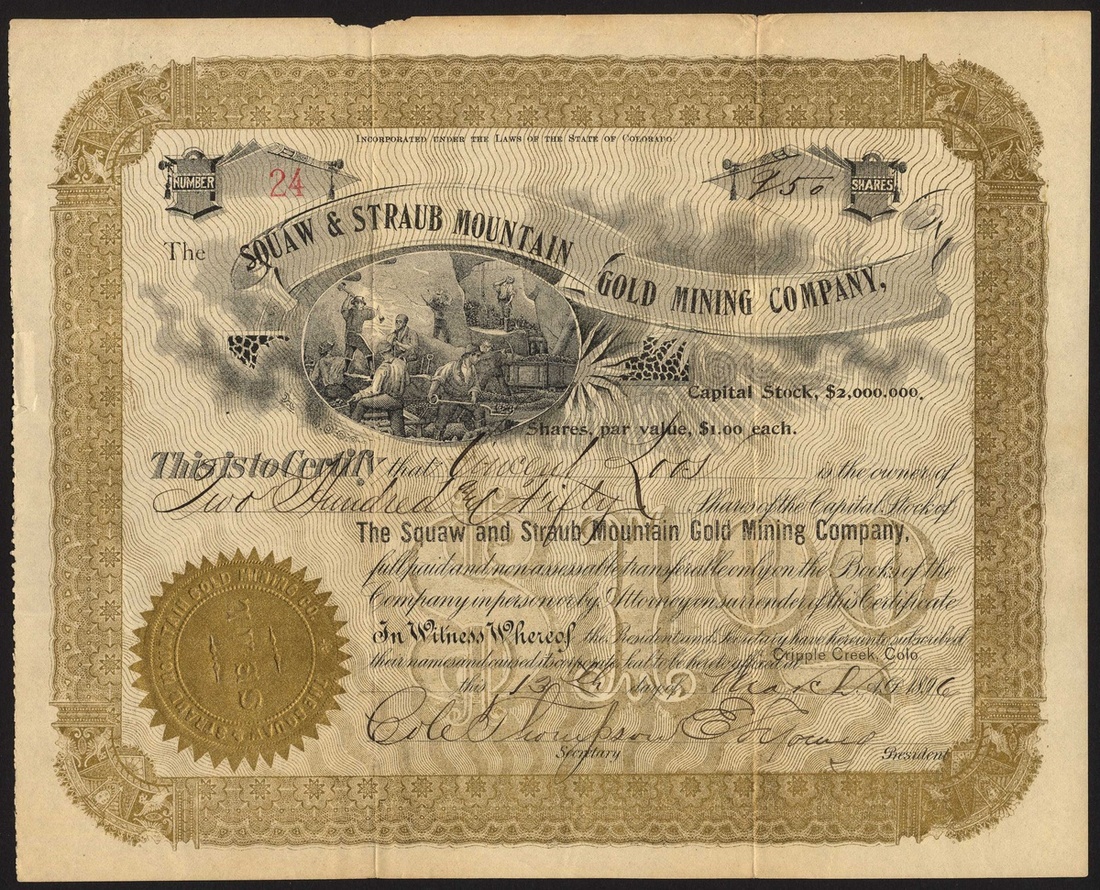 INCORPORATED UNDER THE LAWS OF THE STATE OF COLORADO.
NUMBER 24
250 SHARES
The SQUAW & STRAUB MOUNTAIN GOLD MINING COMPANY,
Capital Stock, $2,000.000.
Shares, par value, $1.00 each.
This is to Certify that Loos is the owner of
Two Hundred and Fifty Shares of the Capital Stock of
The Squaw and Straub Mountain Gold Mining Company,
full paid and non assessable transferable only on the Books of the
Company in person or by Attorney on surrender of this Certificate
In Witness Whereof the President and Secretary have hereunto subscribed
their names and caused its corporate Seal to be hereto affixed at Cripple Creek, Colo
this 13th day of March A.D. 1896
Cole Thompson E. Young
Secretary President
$100
SEAL